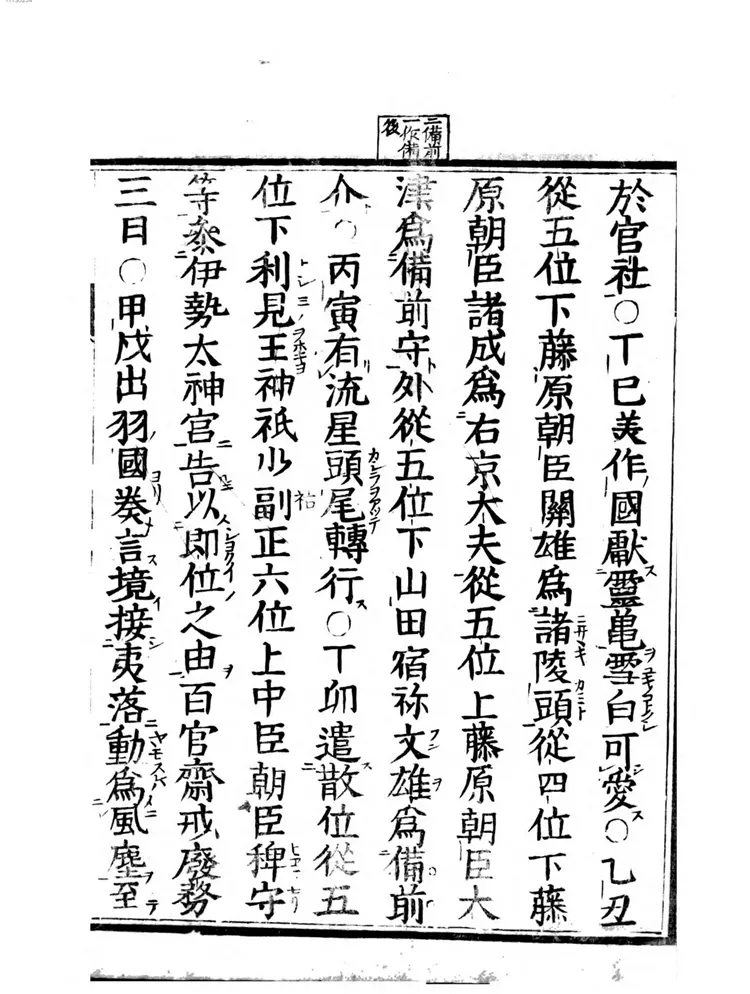 三備前
一作備
後
於官社〇丁巳美作國獻靈亀雪白可愛〇乙丑
從五位下藤原朝臣關雄爲諸陵頭從四位下藤
原朝臣諸成爲右京大夫從五位上藤原朝臣大
津爲備前守外從五位下山田宿祢文雄爲備前
介〇丙寅有流星頭尾轉行〇丁卯遣散位從五
位下利見王神祇少副正六位上中臣朝臣稗守
等奉伊勢太神宮告以即位之由百官齋戒廢務
三日〇甲戌出羽國奏言境接夷落動爲風塵至